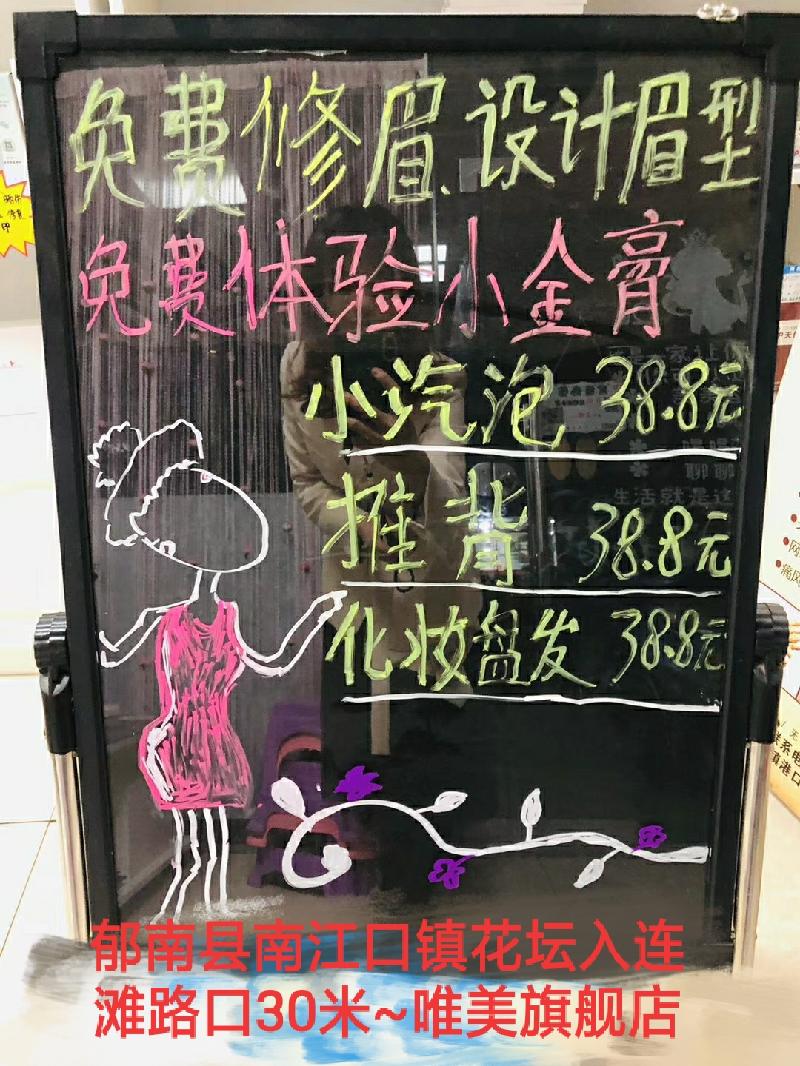 免费修眉、设计眉型
免费体验小金膏
小汽泡 38.8元
推背 38.8元
化妆盘发 38.8元
郁南县南江口镇花坛入连
滩路口30米~唯美旗舰店